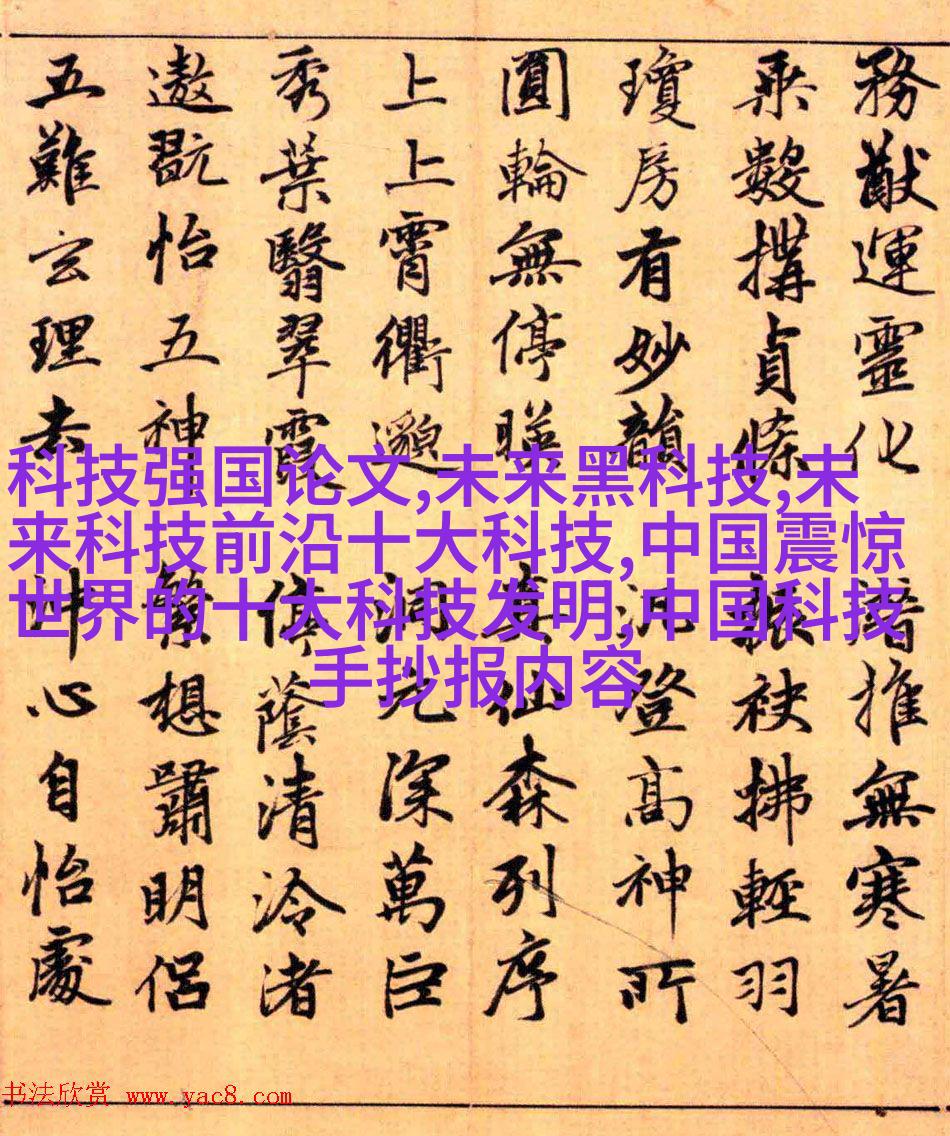 務猷運靈化 潛推無寒暑
乘數搆貞條 振袂拂輕羽
瓊房有妙韻 汎登高神所
圓輪無停暎 真仙森列序
上上霄衢邈 洞元深萬臣
秀葉翳翠霞 停蔭清泠渚
遨翫怡五神 繁想嘯明侶
五難玄理去 沖心自怡處
科技强国论文,未来黑科技,未
来科技前沿十大科技,中国震惊
世界的十大科技发明,中国科技
手抄报内容
书法欣赏 www.yac8.com